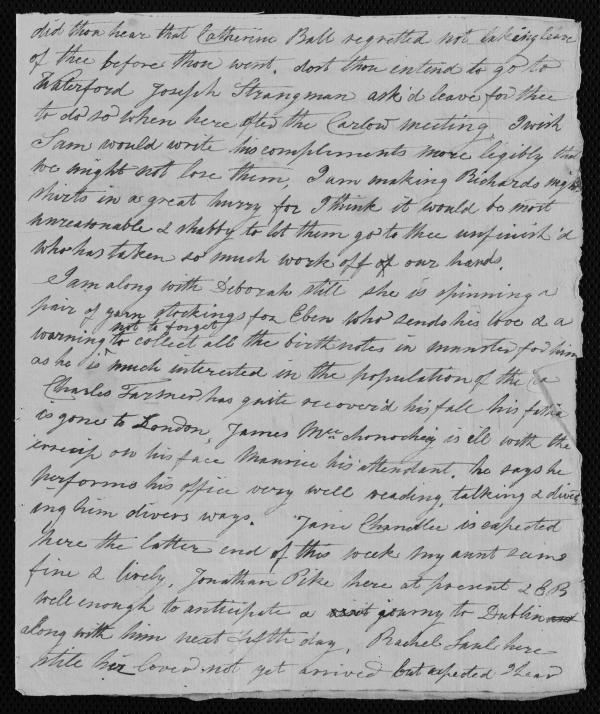 did thou hear that Catherine Ball regretted not taking leave
of thee before thou went. dost thou entend to go to
Waterford Joseph Strangman ask'd leave for thee
to do so when here after the Carlow meeting, I wish
Sam would write his compliments more legibly that
we might not lose them, I am making Richards night
shirts in a great hurry for I think it would be most
unreasonable & shabby to let them go to thee unfinish'd
who has taken so much work off of our hands.
I am along with Deborah still she is spinning a
pair of yarn stockings for Eben who sends his love & a
not to forget
warning to collect all the birth notes in munster for him
as he is much interested in the population of the
Charles Farmer has quite recover'd his fall his
is gone to London, James is ill with the
on his face Maurice his attendant. he says he
performs his office very well reading, talking &
ing him divers ways. Jane Chandlee is expected
here the latter end of this week my aunt seems
fine & lively, Jonathan Pike here at present & E B
well enough to anticipate a visit journy to Dublin and
along with him next fifth day, Rachel here
still her Lover not yet arrived but expected I hear